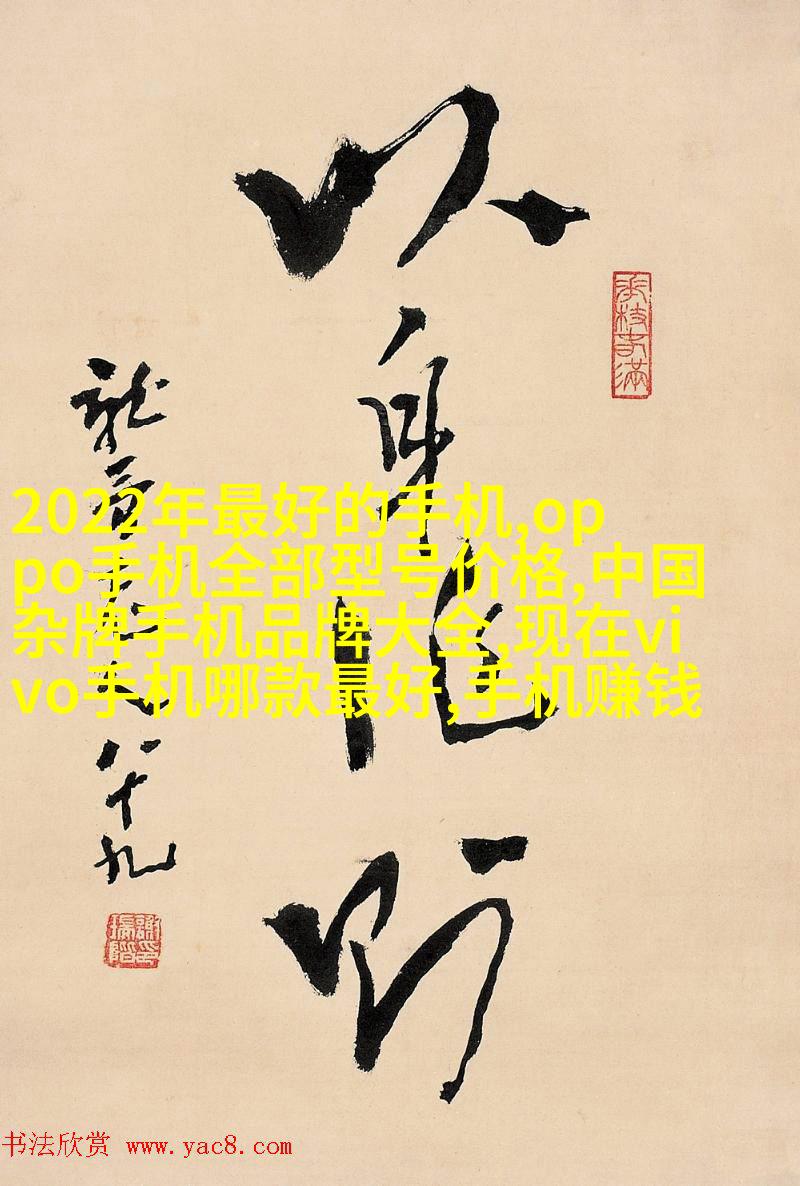 以身作则
龙琴老人八十九
2022年最好的手机,op
po手机全部型号价格,中国
杂牌手机品牌大全,现在vi
vo手机哪款最好,手机赚钱
书法欣赏 www.yac8.com